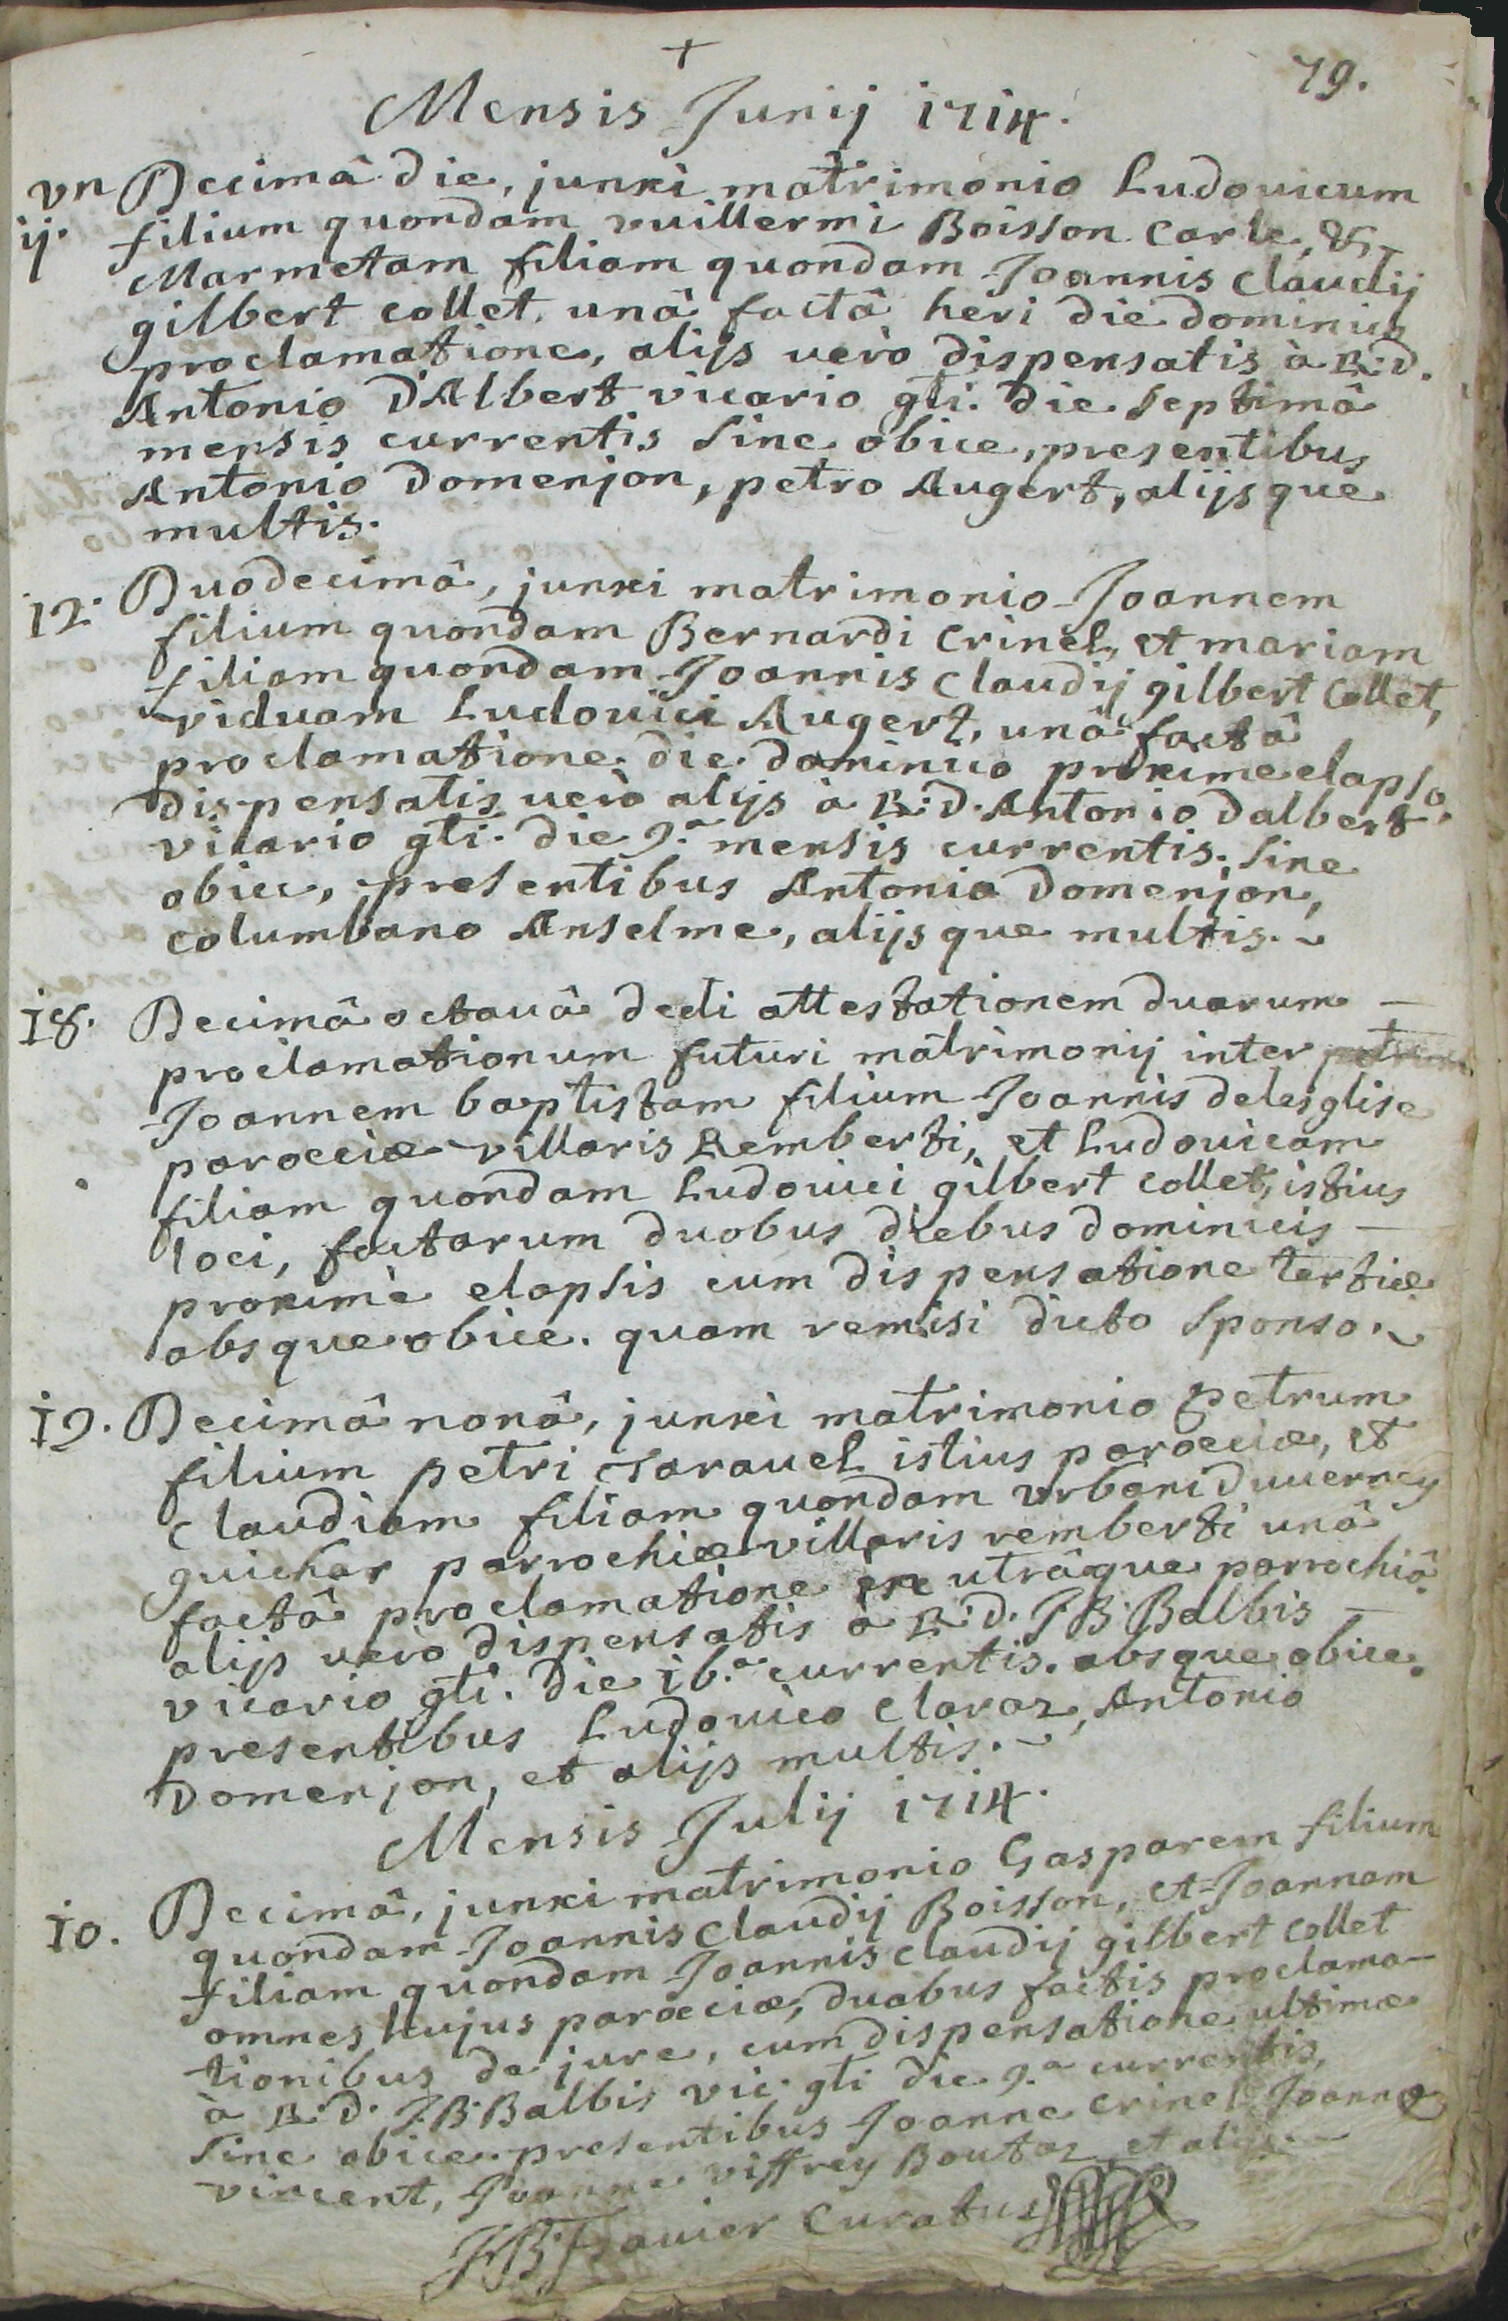 +
79.
Mensis Junij 1714.
vn Decimâ die, junxi matrimonio Ludouicum
ij. filium quondam vuillermi Boisson Carle, &
Marmetam filiam quondam Joannis Claudij
gilbert collet, unâ factâ heri die dominicâ
proclamatione, alijs uerò dispensatis à R.d. D.
Antonio D'Albert vicario gli. die septimâ
mensis currentis sine obice, presentibus
Antonio Domenjon, petro Augert, alijsque
multis.
12. Duodecimâ, junxi matrimonio Joannem
filium quondam Bernardi Crinel, et mariam
filiam quondam Joannis Claudij gilbert Collet,
viduam Ludouici Augert, unâ factâ
proclamatione die dominico proxime elapso
dispensatis uerò alijs à R.d. Antonio Dalbert
vicario gli. die 9.a mensis currentis. sine
obice, presentibus Antonio Domenjon,
columbano Anselme, alijsque multis.
18. Decimâ octauâ dedi attestationem duarum
proclamationum futuri matrimonij inter
Joannem baptistam filium Joannis delesglise
parœciæ villaris Remberti, et Ludouicam
filiam quondam Ludouici gilbert collet, istius
loci, factarum duobus diebus dominicis
proximè elapsis cum dispensatione tertiæ
absque obice. quam remisi dicto sponso.
19. Decimâ nonâ, junxi matrimonio petrum
filium petri Jarauel istius parœciæ, et
Claudiam filiam quondam vrbani duuerney
guichar parrochiæ villaris remberti unâ
factâ proclamatione in utrâque parrochiâ
alijs uero dispensatis à R.d. J.B. Balbis
vicario gli. die 16.a currentis. absque obice.
presentibus Ludouico Claraz, Antonio
Domenjon, et alijs multis.
Mensis Julij 1714.
10. Decimâ, junxi matrimonio Gasparem filium
quondam Joannis Claudij Boisson, et Joannam
filiam quondam Joannis Claudij gilbert collet
omnes hujus parœciæ, duabus factis proclama-
tionibus de jure, cum dispensatione ultimæ
à R.d. J.B. Balbis vic. gli die 9.a currentis,
sine obice. presentibus Joanne Crinel Joanne
vincent, Joanne viffrey Boutaz et alijs.
J B Curatus